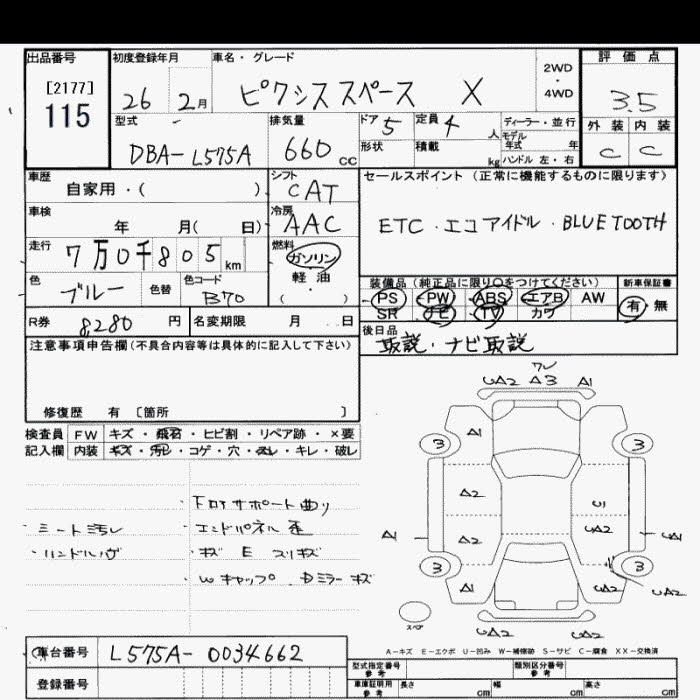 出品番号 初度登録年月 車名・グレード 2WD・4WD 評価点
[2177]
115
26 2月 ピクシススペース X 3.5
型式 排気量 ドア 5 定員 4 人 ディーラー・並行 外装 内装
DBA-L575A 660cc 形状 積載 kg モデル年式 年 ハンドル 左・右 C C
車歴 自家用・( ) シフト CAT セールスポイント (正常に機能するものに限ります)
車検 年 月( 日) 冷房 AAC ETC・エコアイドル・BLUETOOTH
走行 7万0千805km 燃料 ガソリン
色 ブルー 色替 色コード B70 軽油・( ) 装備品 (純正品に限り○をつけてください) 新車保証書
PS PW ABS エアB AW 有・無
SR ナビ TV カワ
R券 8,280円 名変期限 月 日 後日品
取説・ナビ取説
注意事項申告欄(不具合内容等は具体的に記入して下さい)
修復歴 有 〔箇所 〕
検査員 FW キズ・飛石・ヒビ割・リペア跡・×要
記入欄 内装 キズ・汚レ・コゲ・穴・スレ・キレ・破レ
・シート汚レ
・ハンドルハゲ
・下ロアサポート曲り
・エンドパネル歪
・キズ E スリキズ
・Wキャップ・Dミラーキズ
UA2 A3 A1
3 A1 3
A2 U1
A1 A2 UA2 UA1
3 A1 UA2 3 UA2
スペア
UA2 UA2
A-キズ E-エクボ U-凹み W-補修跡 S-サビ C-腐食 XX-交換済
車台番号 L575A-0034662
登録番号
型式指定番号 参考 類別区分番号 参考
車庫証明用 参考 長さ cm 幅 cm 高さ cm